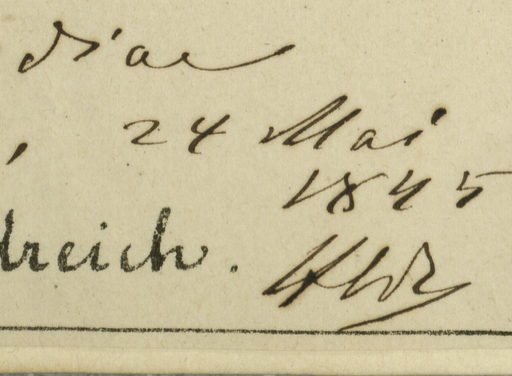 diae
, 24 Mai
1845
dreich.